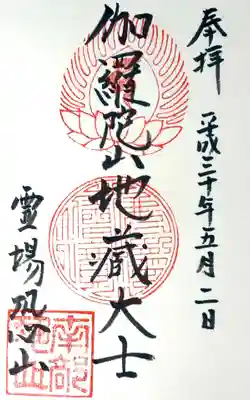 奉拝
平成三十年五月二日
伽羅陀山地蔵大士
霊場恐山
南部
恐山